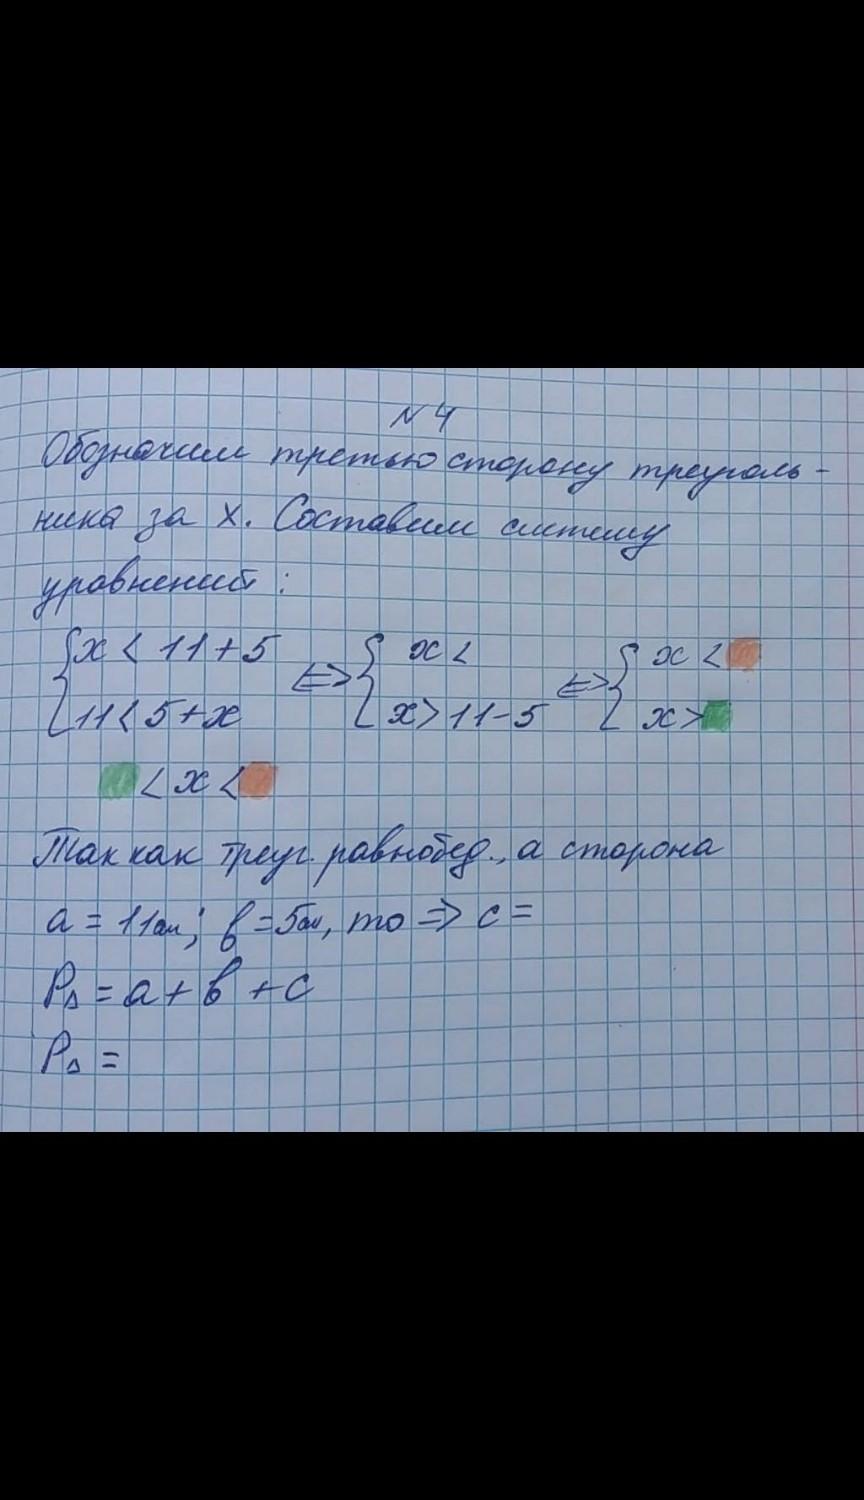 № 4
Обозначим третью сторону треуголь-
ника за x. Составим систему
уравнений:
{ x < 11 + 5 <=> { x < <=> { x <
{ 11 < 5 + x { x > 11 - 5 { x >
< x <
Так как треуг. равнобед., а сторона
a = 11 см; b = 5 см, то => c =
P△ = a + b + c
P△ =